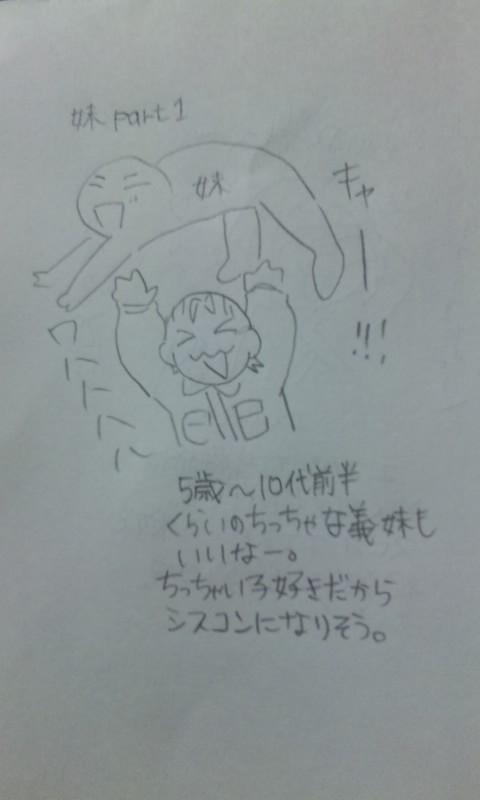 妹 part1
妹
キャー!!!
ワハハハハ
ellB
5歳〜10代前半
くらいのちっちゃな義妹も
いいなー。
ちっちゃい子好きだから
シスコンになりそう。